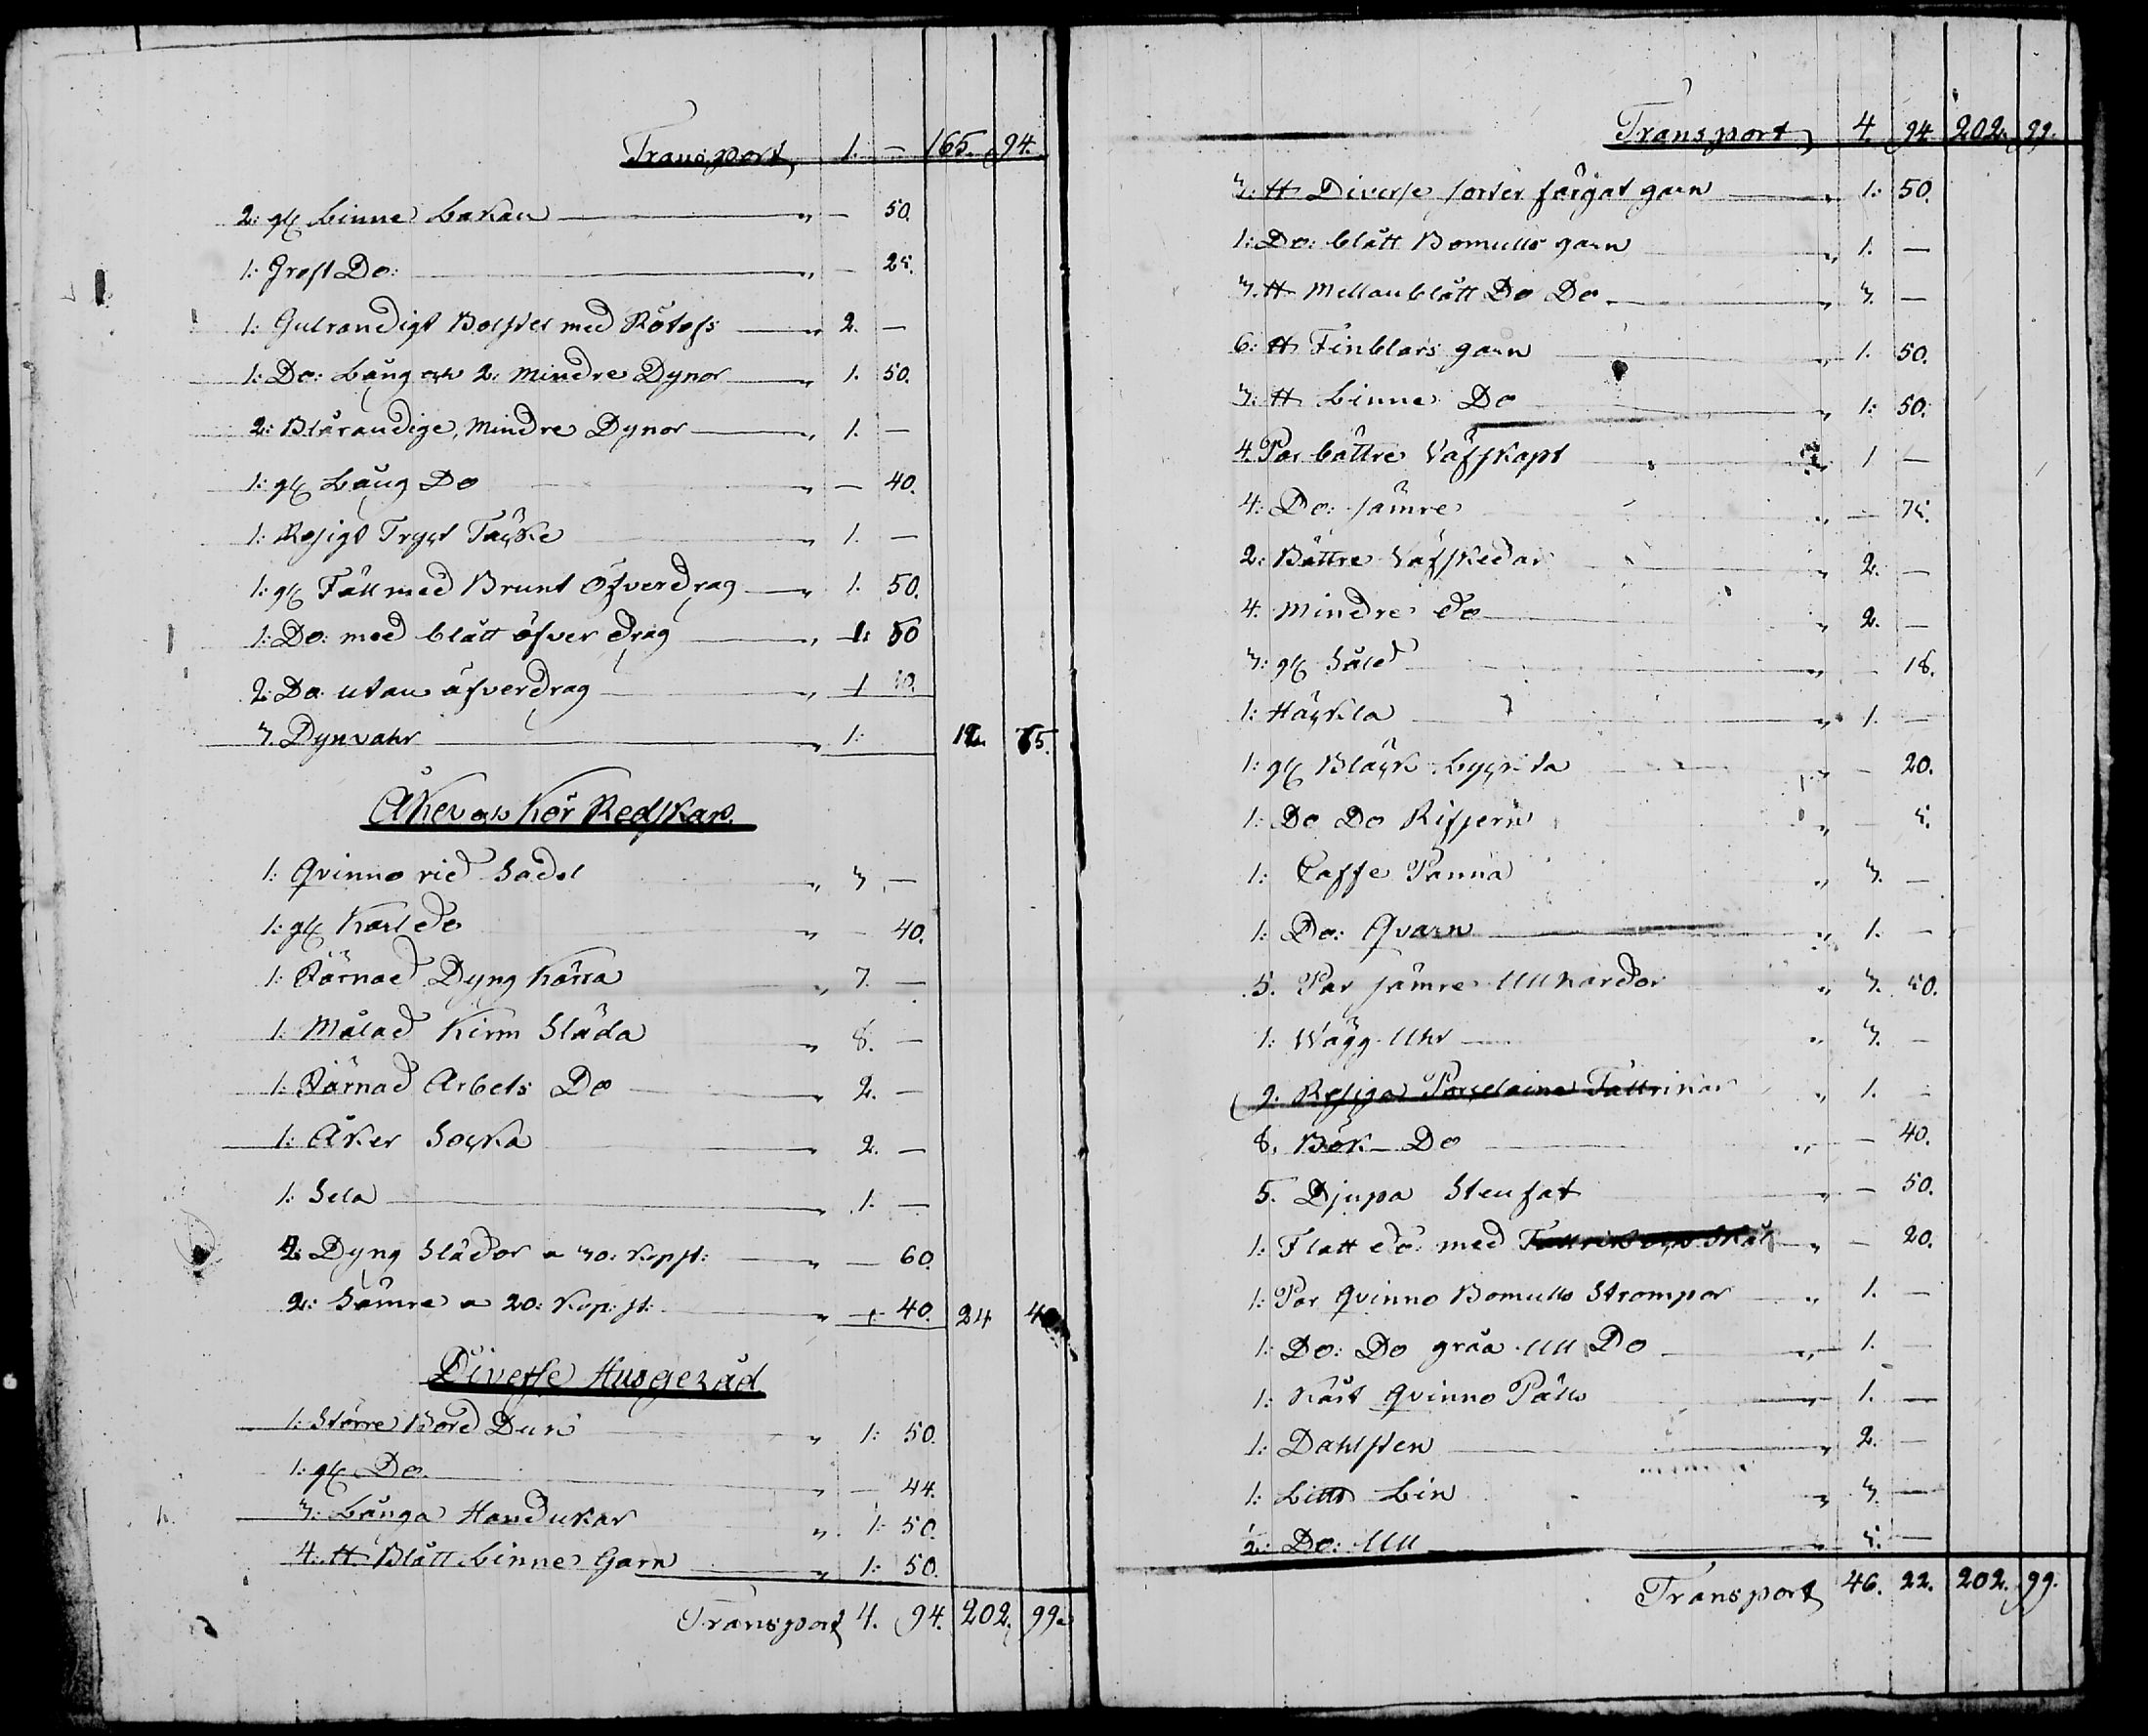 Transport, 1. — 165. 94.
2: gl Linne Lakan — " — 50.
1: Groft Do: — " — 25.
1: Gulrandigt Bolster med Rötass — " 2. —
1: Do: Lång och 2: Mindre Dynor — " 1. 50.
2: Blårandige, Mindre Dynor — " 1. —
1: gl Lång Do " — 40.
1: Rysigt Tryct Täcke " 1. —
1: gl Fäll med Brunt öfverdrag — " 1. 50.
1: Do: med blått öfver drag — " 1: 50
2: Do utan öfverdrag — " 1
3. Dynvahr — " 1: 12. 65.
Åker och Kör Redskap.
1: Qvinno rid Sadel " 3 —
1: gl Karl do " — 40.
1: Järnad Dyng Kärra " 7. —
1: Målad Kirm Släda " 8. —
1: Järnad Arbets Do — " 2. —
1: Åker Socka — " 2. —
1: Sela — " 1. —
2: Dyng Slädor a 30: Kop st: — " — 60.
2: Sämre a 20: Kop: st: " — 40. 24 40
Diverse Husgeråd
1: Större Bord Duk " 1: 50.
1: gl Do. " — 44.
3: Långa Handukar " 1: 50.
4: ℔ Blått Linne Garn — " 1: 50.
Transport 4. 94. 202. 99.
Transport, 4. 94. 202. 99.
3: ℔ Diverse sorter färgat garn — " 1: 50.
1: Do: blått Bomulls garn " 1. —
3. ℔ Mellanblått Do Do — " 3. —
6: ℔ Finblårs garn " 1. 50.
3: ℔ Linne Do " 1: 50:
4. Par bättre Väfskapt " 1 —
4: Do: sämre " — 75.
2: Bättre Väfskedar " 2. —
4. Mindre do — " 2. —
3: gl Såld " — 18.
1: Häckla " 1. —
1: gl Bläck Lyckta " — 20.
1: Do Do Rifjern " — 5.
1: Caffe Panna " 3. —
1: Do: Qvarn — " 1. —
5. Par sämre Ullkardor " 3. 50.
1: Wägg Uhr — " 3. —
9. Rysiga Porcelaine Tallrikar " 1. —
8. Bök Do — " — 40.
5. Djupa Stenfat " — 50.
1: Flatt do: med Tallrik och Skål " — 20.
1: Par Qvinno Bomulls Strompor — " 1. —
1: Do: Do gråa Ull Do — " 1. —
1: Kårt Qvinno Päls — 1. —
1: Dahlsten — " 2. —
1: Littb Lin " 3. —
2: Do: Ull — " 5. —
Transport 46. 22. 202. 99.